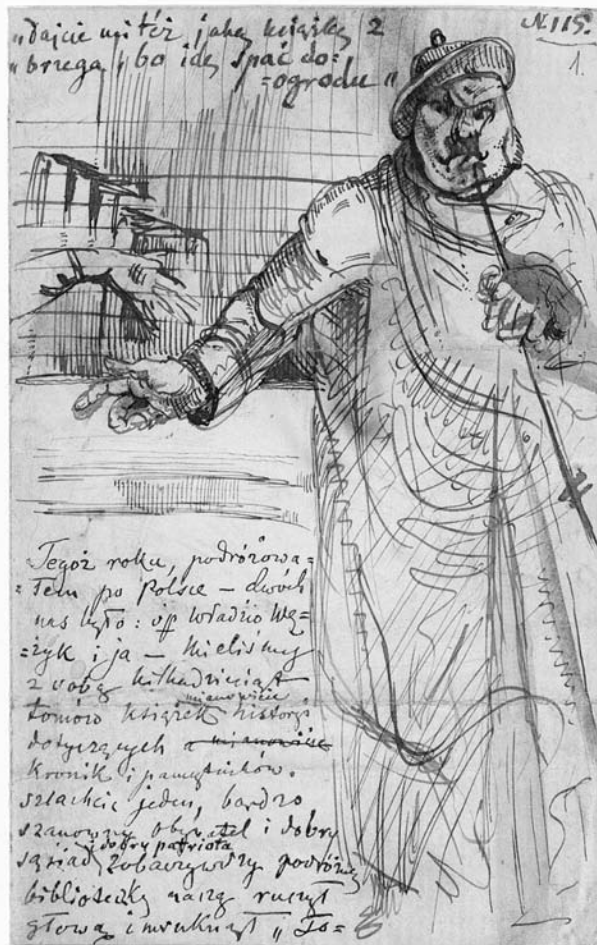 "Dajcie mi téż jaką książkę z
"brzega, bo idę spać do=
=ogrodu"
N. 115.
1.
Tegoż roku, podróżowa=
=łem po Polsce – dwóch
nas było: śp Władzio Wę=
=żyk i ja – Mieliśmy
z sobą kilkadziesiąt
mianowicie
tomów książek historyi
dotyczących a mianowicie
Kronik i pamiętników.
szlachcic jeden, bardzo
szanowny obywatel i dobry
i dobry patriota
sąsiad, zobaczywszy podróżną
biblioteckę naszą ruszył
głową i mruknął „To=